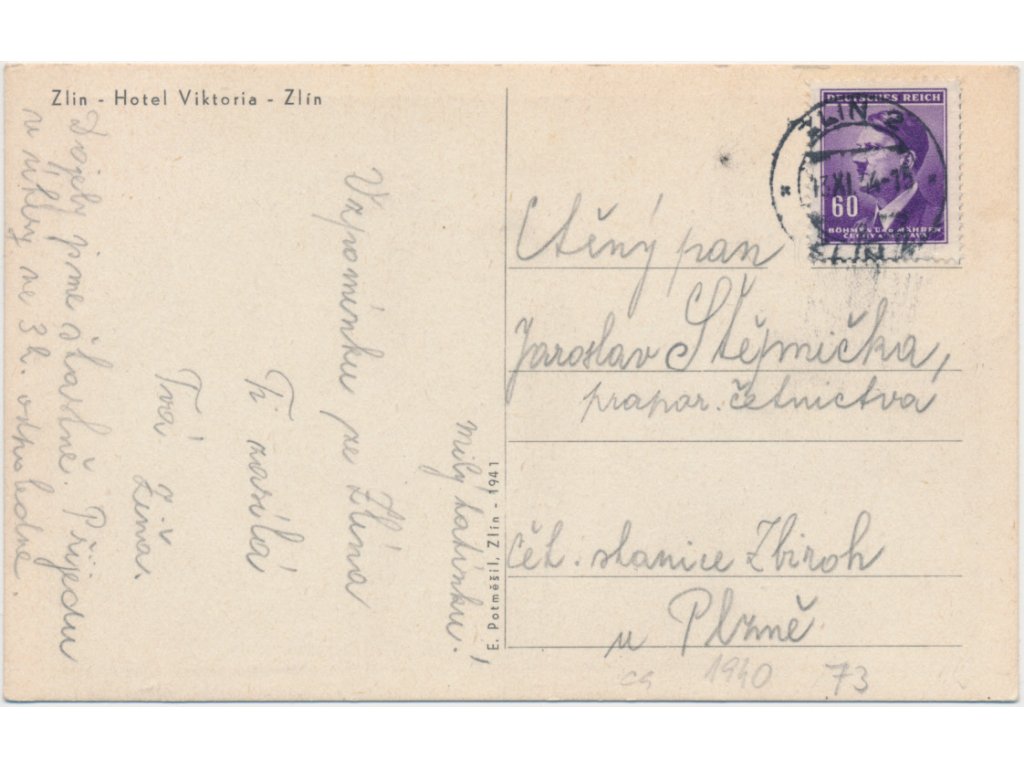 Zlin - Hotel Viktoria - Zlín
Milý tatínku!
Vzpomínku ze Zlína
Ti zasílá
Tvá Zěna.
Dojely jsme šťastně. Přijedu
v úterý ve 3 h. odpoledne.
E. Potměšil, Zlín - 1941
DEUTSCHES REICH
60
BÖHMEN UND MÄHREN
ČECHY A MORAVA
ZLÍN 2
XI. 4-15
ZLIN 2
Ctěný pan
Jaroslav Štěpnička,
prapor. četnictva
čet. stanice Zbiroh
u Plzně
ca 1940 73